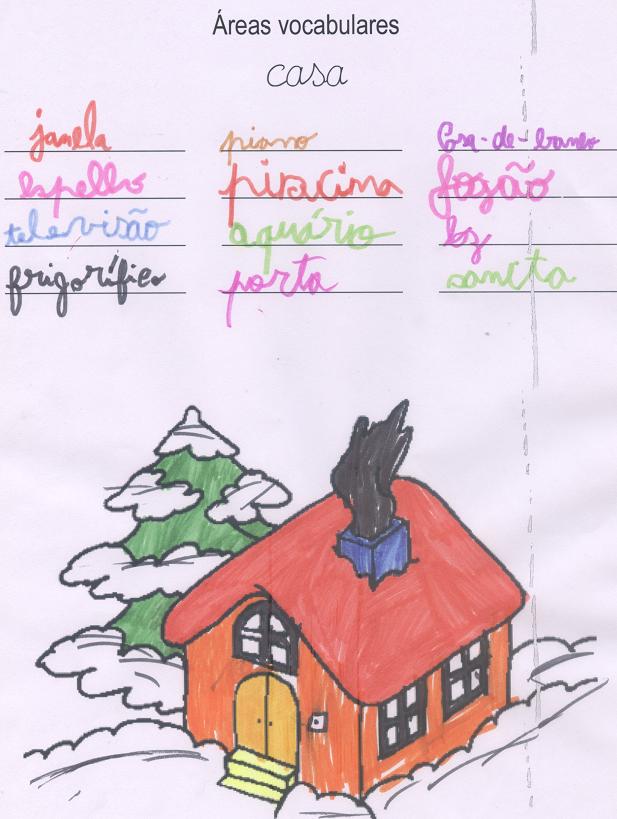 Áreas vocabulares
casa
janela piano Casa-de-banho
espelho piscina fogão
televisão aquário luz
frigorífico porta sancta